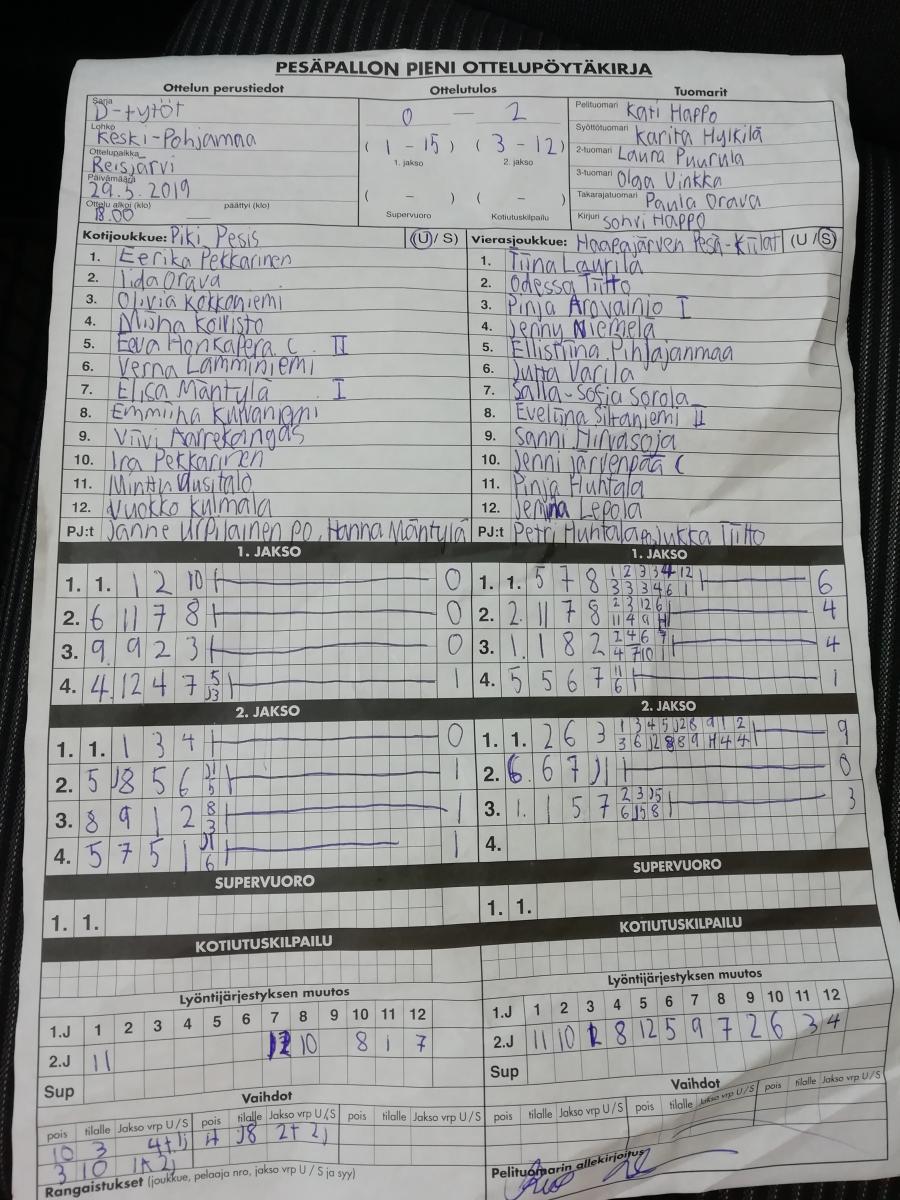 PESÄPALLON PIENI OTTELUPÖYTÄKIRJA
Ottelun perustiedot
Ottelutulos
Tuomarit
Sarja D-tytöt
Lohko Keski-Pohjamaa
Ottelupaikka Reisjärvi
Päivämäärä 29.5.2019
Ottelu alkoi (klo) 18.00 päättyi (klo)
0 – 2
( 1 - 15 ) ( 3 - 12 )
1. jakso 2. jakso
( - ) ( - )
Supervuoro Kotiutuskilpailu
Pelituomari Kati Happo
Syöttötuomari Karita Hylkilä
2-tuomari Laura Puurula
3-tuomari Olga Vinkka
Takarajatuomari Paula Orava
Kirjuri Sohvi Happo
Kotijoukkue: Piki Pesis (U / S)
1. Eerika Pekkarinen
2. Iida Orava
3. Olivia Kokkoniemi
4. Miina Koivisto
5. Eeva Honkaperä C II
6. Verna Lamminiemi
7. Elisa Mäntylä I
8. Emmiina
9. Viivi Aarrekangas
10. Ira Pekkarinen
11. Minttu Uusitalo
12. Vuokko Kulmala
PJ:t Janne Urpilainen PO, Hanna Mäntylä
Vierasjoukkue: Haapajärven Pesä-Kiilat (U / S)
1. Tiina Laurila
2. Odessa Tiitto
3. Pinja Arovainio I
4. Jenny Niemelä
5. Ellistiina Pihlajanmaa
6. Jutta Varila
7. Salla-Sofia Sorola
8. Eveliina Siltaniemi II
9. Sanni Hirvasoja
10. Jenni Järvenpää C
11. Pinja Huhtala
12. Jemina Lepola
PJ:t Petri Huhtala PO, Jukka Tiitto
1. JAKSO
1. 1. 1 2 10 0
2. 6 11 7 8 0
3. 9. 9 2 3 0
4. 4. 12 4 7 5 J3 1
2. JAKSO
1. 1. 1 3 4 0
2. 5 J8 5 6 J1 5 1
3. 8 9 1 2 8 3 1
4. 5 7 5 1 J1 6 1
SUPERVUORO
1. 1.
KOTIUTUSKILPAILU
1. JAKSO
1. 1. 5 7 8 1 2 3 3 4 12 6
3 3 3 4 6 1
2. 2. 11 7 8 2 3 12 6 4
11 4 9 H
3. 1. 1 8 2 2 4 6 7 4
4 7 10 1
4. 5 5 6 7 11 6 1
2. JAKSO
1. 1. 2 6 3 1 3 4 5 J2 8 9 1 2 9
3 6 J2 8 8 9 H 4 4
2. 6. 6 7 J1 0
3. 1. 1 5 7 2 3 J5 3
6 J5 8
4.
SUPERVUORO
1. 1.
KOTIUTUSKILPAILU
Lyöntijärjestyksen muutos
1.J 1 2 3 4 5 6 7 8 9 10 11 12
2.J 11 12 10 8 1 7
Sup
Vaihdot
pois tilalle Jakso vrp U / S pois tilalle Jakso vrp U / S pois tilalle Jakso vrp U / S
10 3 4+1j H J8 2+2j
3 10
Rangaistukset (joukkue, pelaaja nro, jakso vrp U / S ja syy)
Lyöntijärjestyksen muutos
1.J 1 2 3 4 5 6 7 8 9 10 11 12
2.J 11 10 1 8 12 5 9 7 2 6 3 4
Sup
Vaihdot
pois tilalle Jakso vrp U / S pois tilalle Jakso vrp U / S pois tilalle Jakso vrp U / S
Pelituomarin allekirjoitus